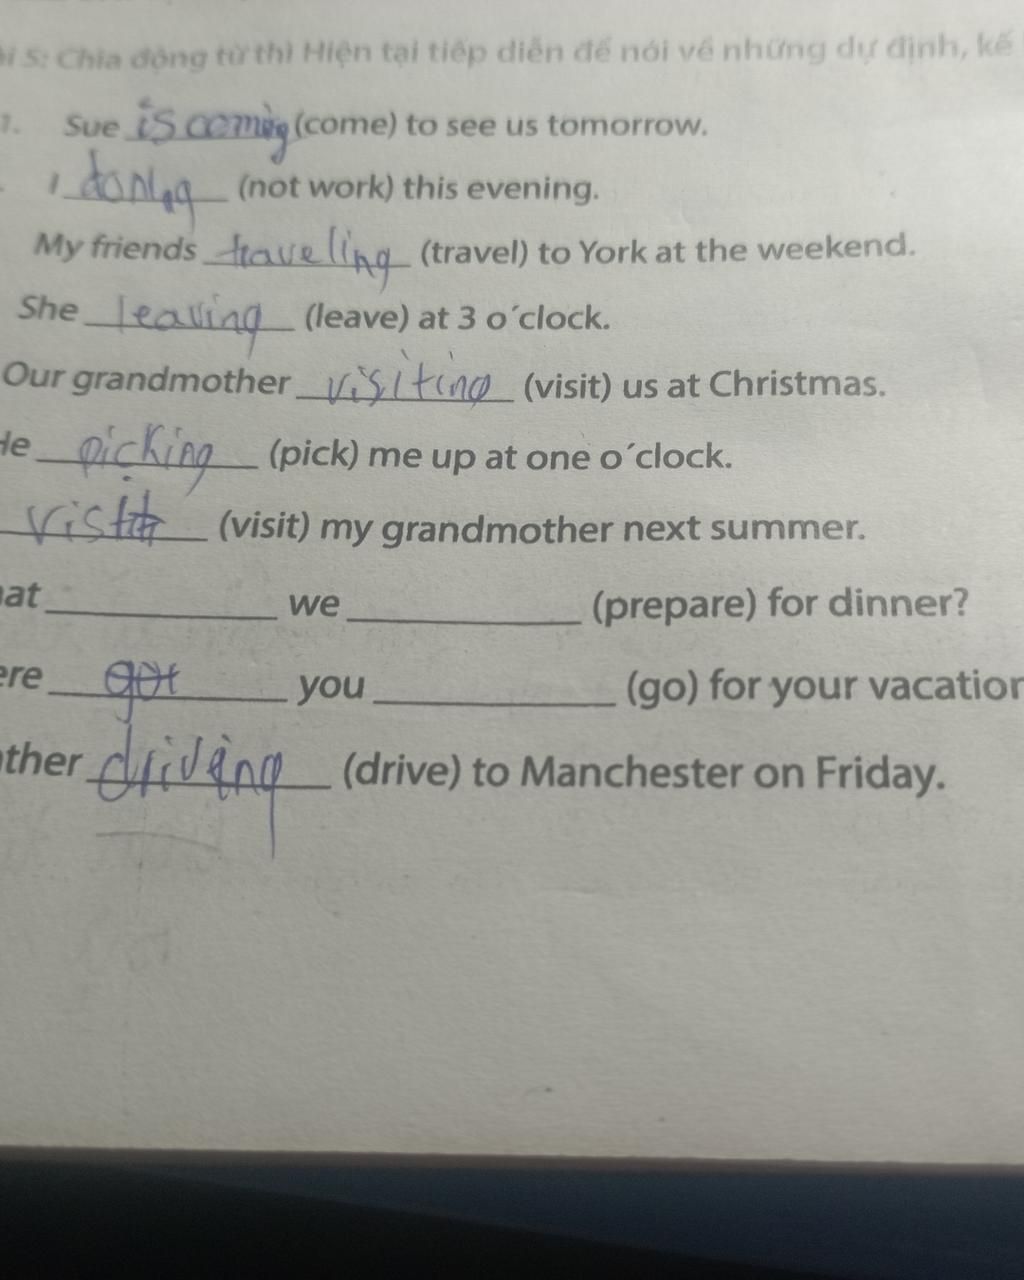 5: Chia động từ thì Hiện tại tiếp diễn để nói về những dự định, kế
1. Sue is coming (come) to see us tomorrow.
I (not work) this evening.
My friends traveling (travel) to York at the weekend.
She leaving (leave) at 3 o´clock.
Our grandmother visiting (visit) us at Christmas.
He picking (pick) me up at one o´clock.
(visit) my grandmother next summer.
at we (prepare) for dinner?
ere got you (go) for your vacation
ther driving (drive) to Manchester on Friday.